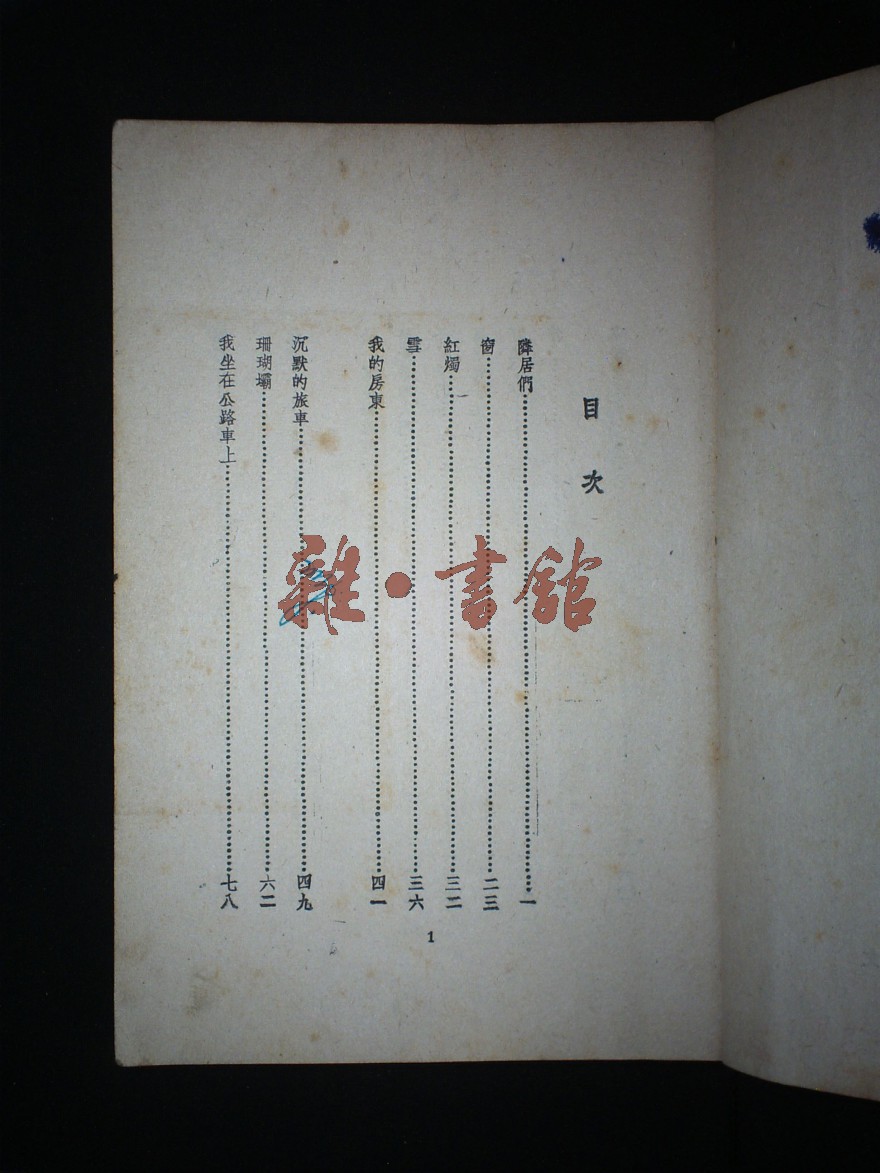 目次
隣居們……一
窗……二三
紅燭……三二
雪……三六
我的房東……四一
沉默的旅車……四九
珊瑚壩……六二
我坐在公路車上……七八
1
雜·書館